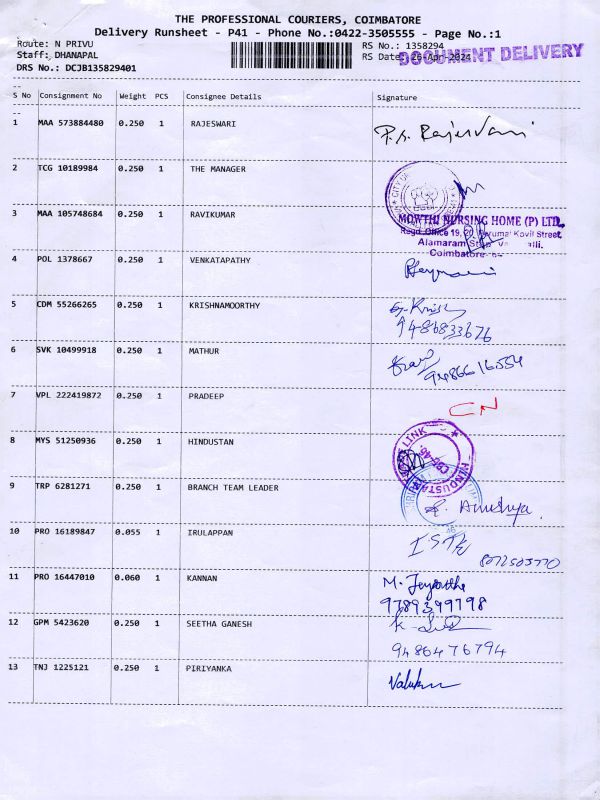 THE PROFESSIONAL COURIERS, COIMBATORE
Delivery Runsheet - P41 - Phone No.:0422-3505555 - Page No.:1
Route: N PRIVU
RS No.: 1358294
Staff: DHANAPAL
RS Date: 26-Apr-2024
DOCUMENT DELIVERY
DRS No.: DCJB135829401
--
S No Consignment No Weight PCS Consignee Details Signature
--
1 MAA 573884480 0.250 1 RAJESWARI
P.S. Rajesvari
2 TCG 10189984 0.250 1 THE MANAGER
CITY OF
3 MAA 105748684 0.250 1 RAVIKUMAR
MOWTHI NURSING HOME (P) LTD.
Regd. Office 19, Kovil Street,
Alamaram
Coimbatore
4 POL 1378667 0.250 1 VENKATAPATHY
5 CDM 55266265 0.250 1 KRISHNAMOORTHY
9486833676
6 SVK 10499918 0.250 1 MATHUR
9486616554
7 VPL 222419872 0.250 1 PRADEEP
CN
8 MYS 51250936 0.250 1 HINDUSTAN
LINK
CBE-45.
HINDUSTAN
9 TRP 6281271 0.250 1 BRANCH TEAM LEADER
Anushya.
10 PRO 16189847 0.055 1 IRULAPPAN
8072503770
11 PRO 16447010 0.060 1 KANNAN
9789399798
12 GPM 5423620 0.250 1 SEETHA GANESH
9486476794
13 TNJ 1225121 0.250 1 PIRIYANKA